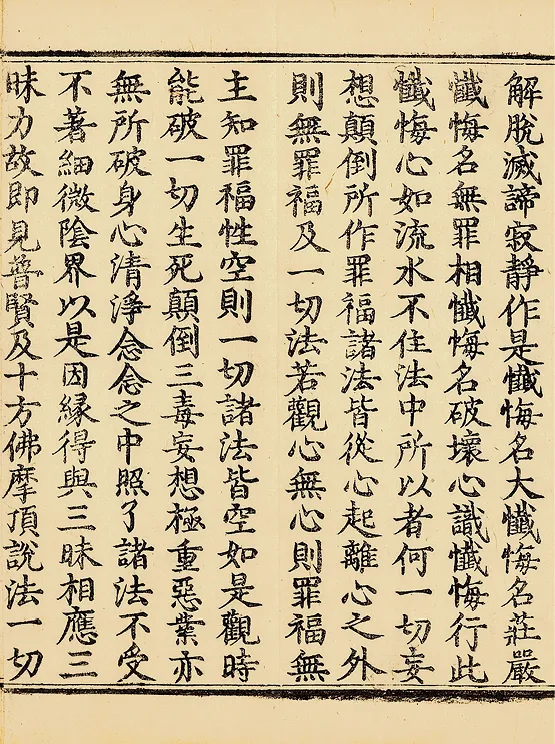 解脫滅諦寂靜作是懺悔名大懺悔名莊嚴
懺悔名無罪相懺悔名破壞心識懺悔行此
懺悔心如流水不住法中所以者何一切妄
想顛倒所作罪福諸法皆從心起離心之外
則無罪福及一切法若觀心無心則罪福無
主知罪福性空則一切諸法皆空如是觀時
能破一切生死顛倒三毒妄想極重惡業亦
無所破身心清淨念念之中照了諸法不受
不著細微陰界以是因緣得與三昧相應三
昧力故即見普賢及十方佛摩頂說法一切